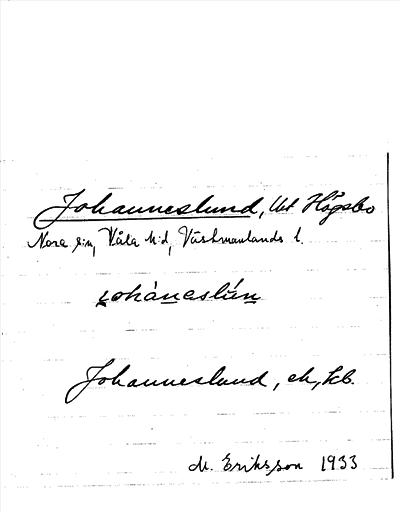 Johanneslund, lht Högsbo
Nora sn, Våla h:d, Västmanlands l.
joháneslún
Johanneslund, ek, kb.
M. Eriksson 1933